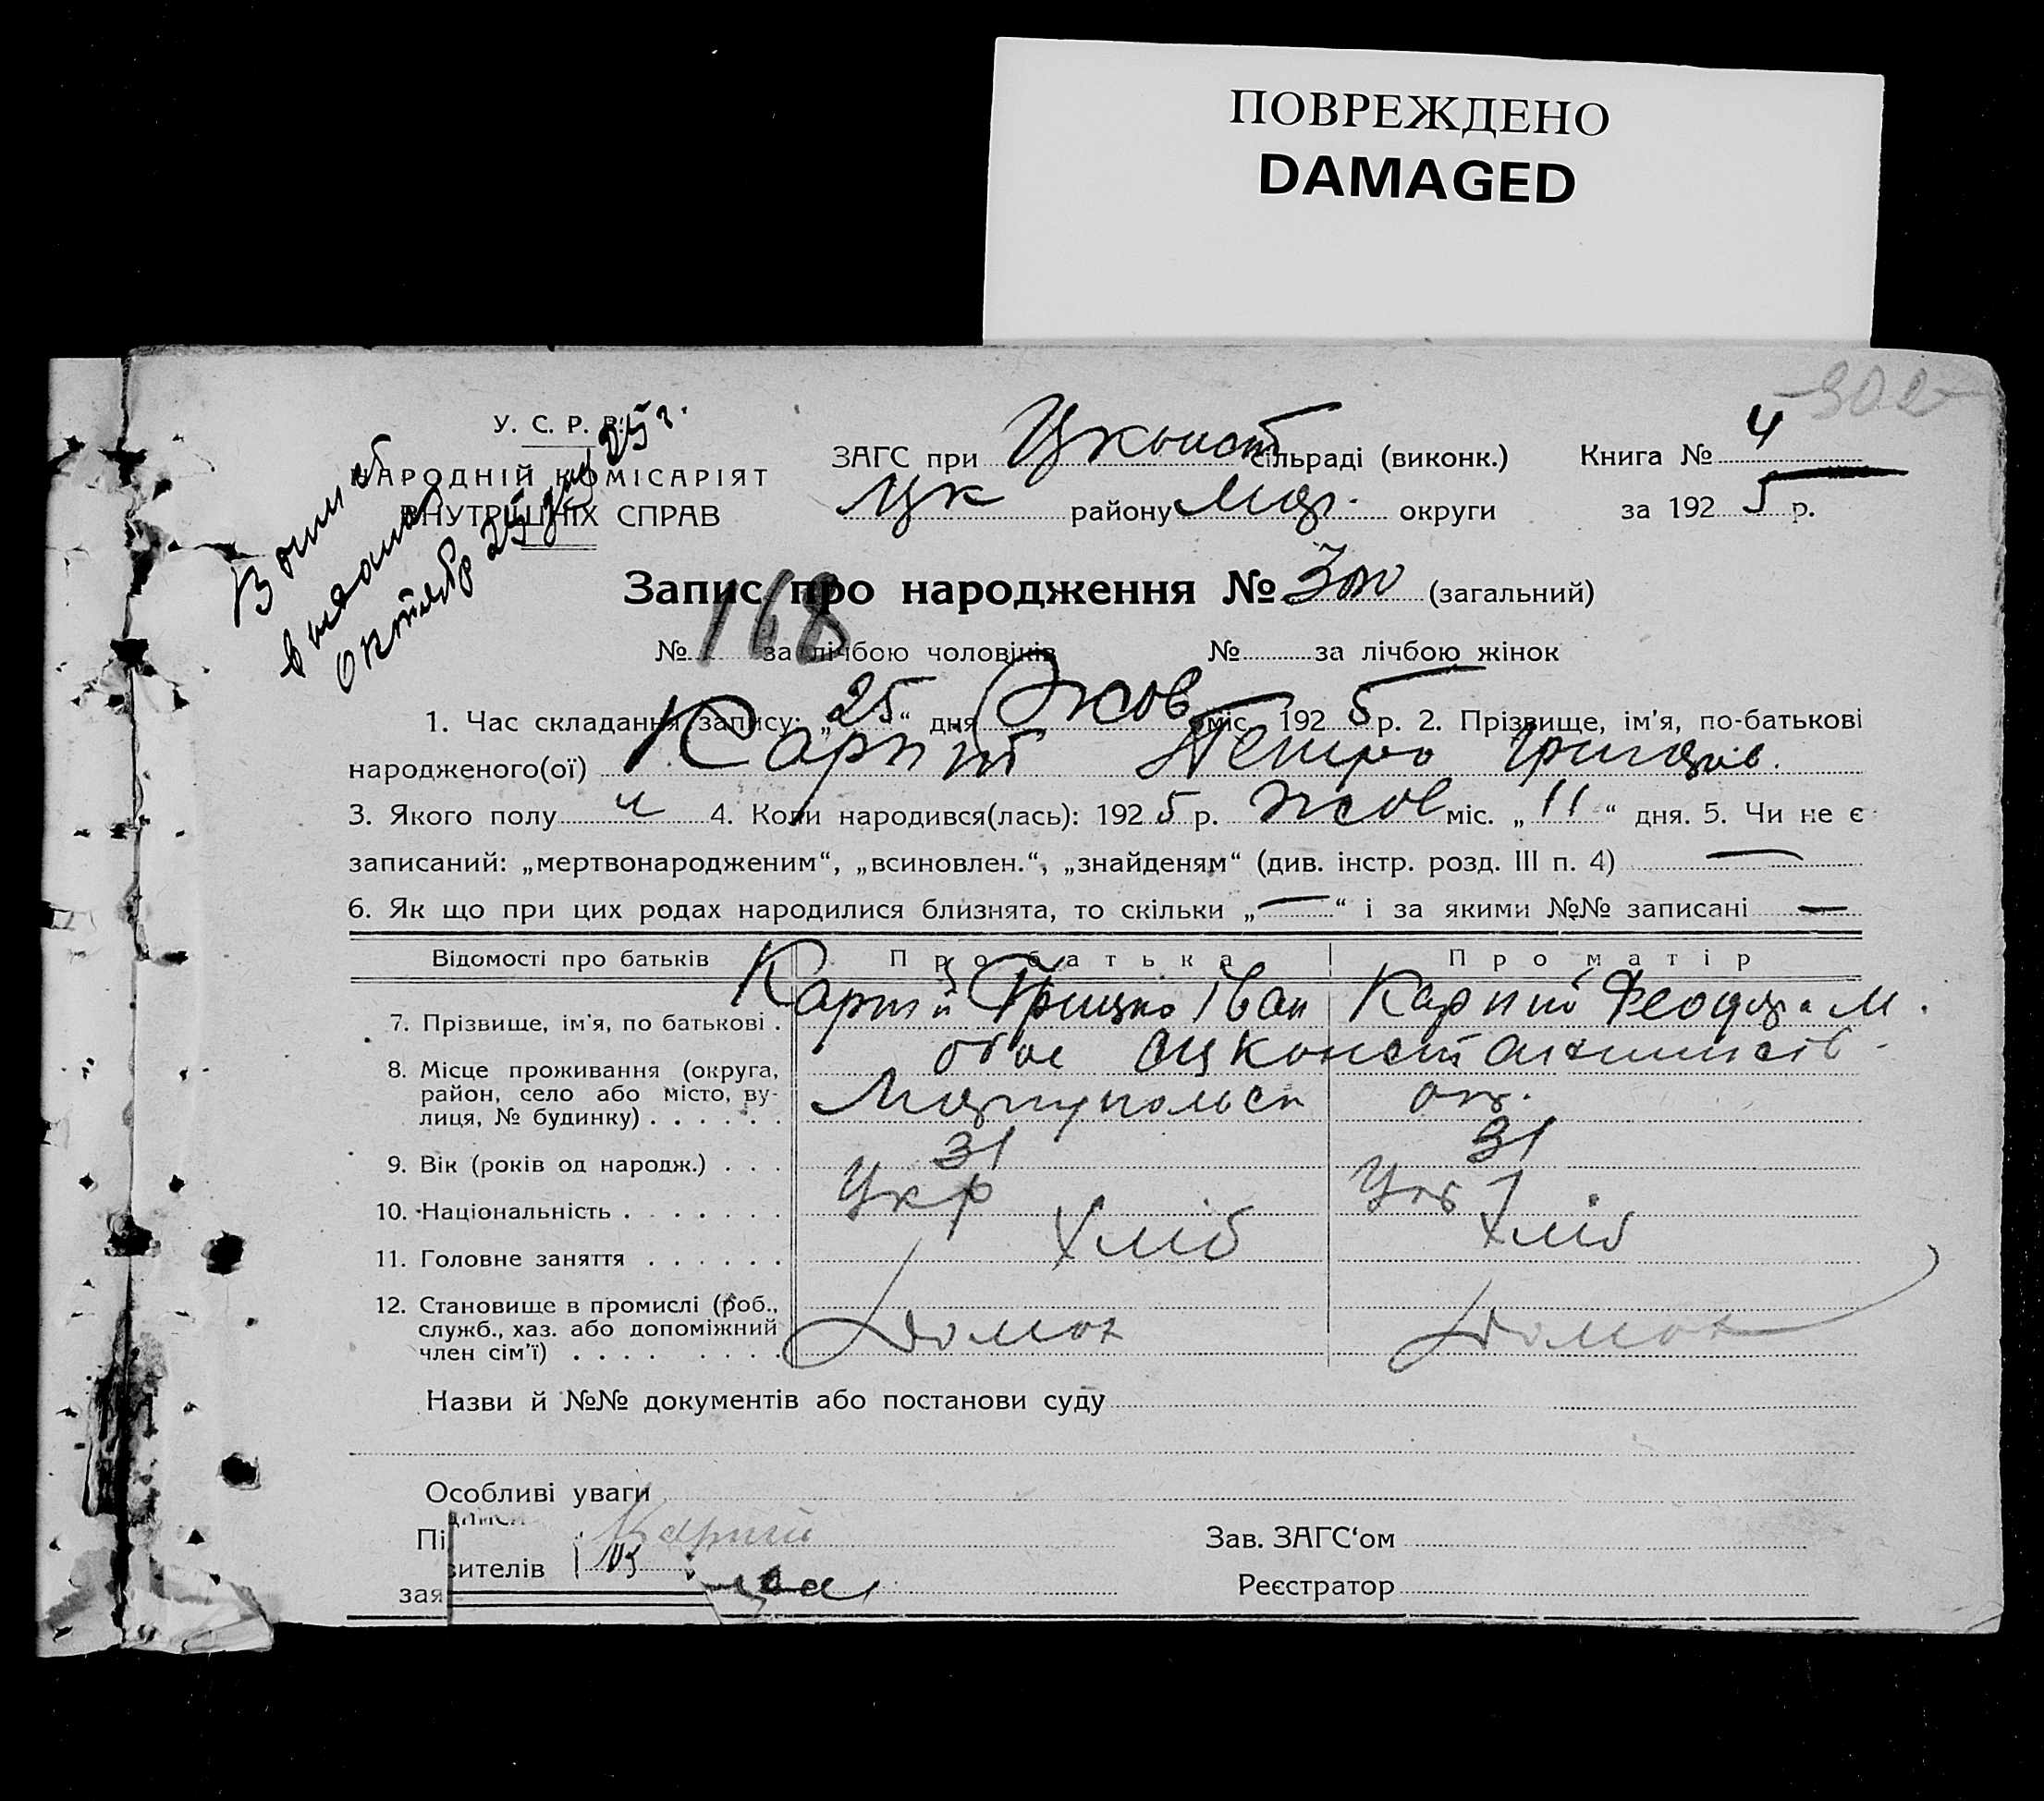 ПОВРЕЖДЕНО
DAMAGED
302
У. С. Р. Р.
НАРОДНІЙ КОМІСАРІЯТ
ВНУТРІШНІХ СПРАВ
октября 25 дня 25 г.
ЗАГС при Цконст сільраді (виконк.) Книга № 4
Цк району Мар. округи за 1925 р.
Запис про народження № 300 (загальний)
№ 168 за лічбою чоловіків № за лічбою жінок
1. Час складання запису: „25“ дня Жов міс. 1925 р. 2. Прізвище, ім'я, по-батькові
народженого(ої) Карпій Петро Грицьків.
3. Якого полу ч 4. Коли народився(лась): 1925 р. жов міс. „11“ дня. 5. Чи не є
записаний: „мертвонародженим“, „всиновлен.“, „знайденям“ (див. інстр. розд. III п. 4) —
6. Як що при цих родах народилися близнята, то скільки „—“ і за якими №№ записані —
Відомості про батьків Про батька Про матір
7. Прізвище, ім'я, по батькові . Карпій Грицько Іван Карпій Феодора М.
8. Місце проживання (округа, район, село або місто, ву- лиця, № будинку) . . . . . . обоє
Маріупольск ок.
9. Вік (років од народж.) . . . 31 31
10. Національність . . . . . . . Укр Укр
11. Головне заняття . . . . . . Хліб Хліб
12. Становище в промислі (роб.,
служб., хаз. або допоміжний
член сім'ї) . . . . . . . . Домох Домох
Назви й №№ документів або постанови суду
Особливі уваги
Пі Карпій Зав. ЗАГС'ом
зителів
зая Реєстратор